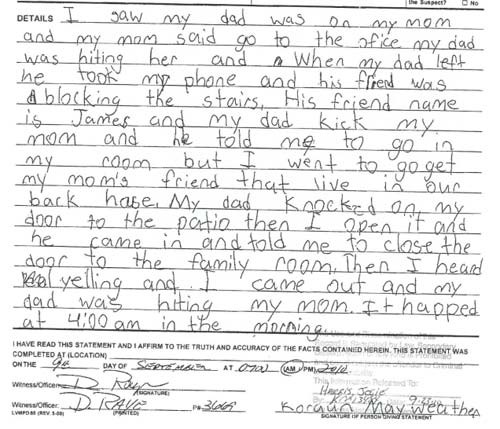 the Suspect? □ No
DETAILS I saw my dad was on my mom
and my mom said go to the ofice my dad
was hiting her and When my dad left
he took my phone and his friend was
blocking the stairs. His friend name
is James and my dad kick my
mom and he told me to go in
my room but I went to go get
my mom's friend that live in our
back hase. My dad knocked on my
door to the patio then I open it and
he came in and told me to close the
door to the family room. Then I heard
yelling and I came out and my
dad was hiting my mom. It happed
at 4:00 am in the morning.
I HAVE READ THIS STATEMENT AND I AFFIRM TO THE TRUTH AND ACCURACY OF THE FACTS CONTAINED HEREIN. THIS STATEMENT WAS
COMPLETED AT (LOCATION)
ON THE 9th DAY OF SEPTEMBER AT 0700 (AM / PM), 2010
Witness/Officer:
(SIGNATURE)
Witness/Officer: D. RAVE P# 
LVMPD 85 (REV. 5-08) (PRINTED)
Koraun Mayweather
SIGNATURE OF PERSON GIVING STATEMENT